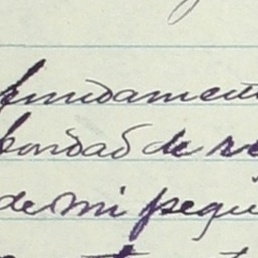 fundament
bondad de re
de mi pequ